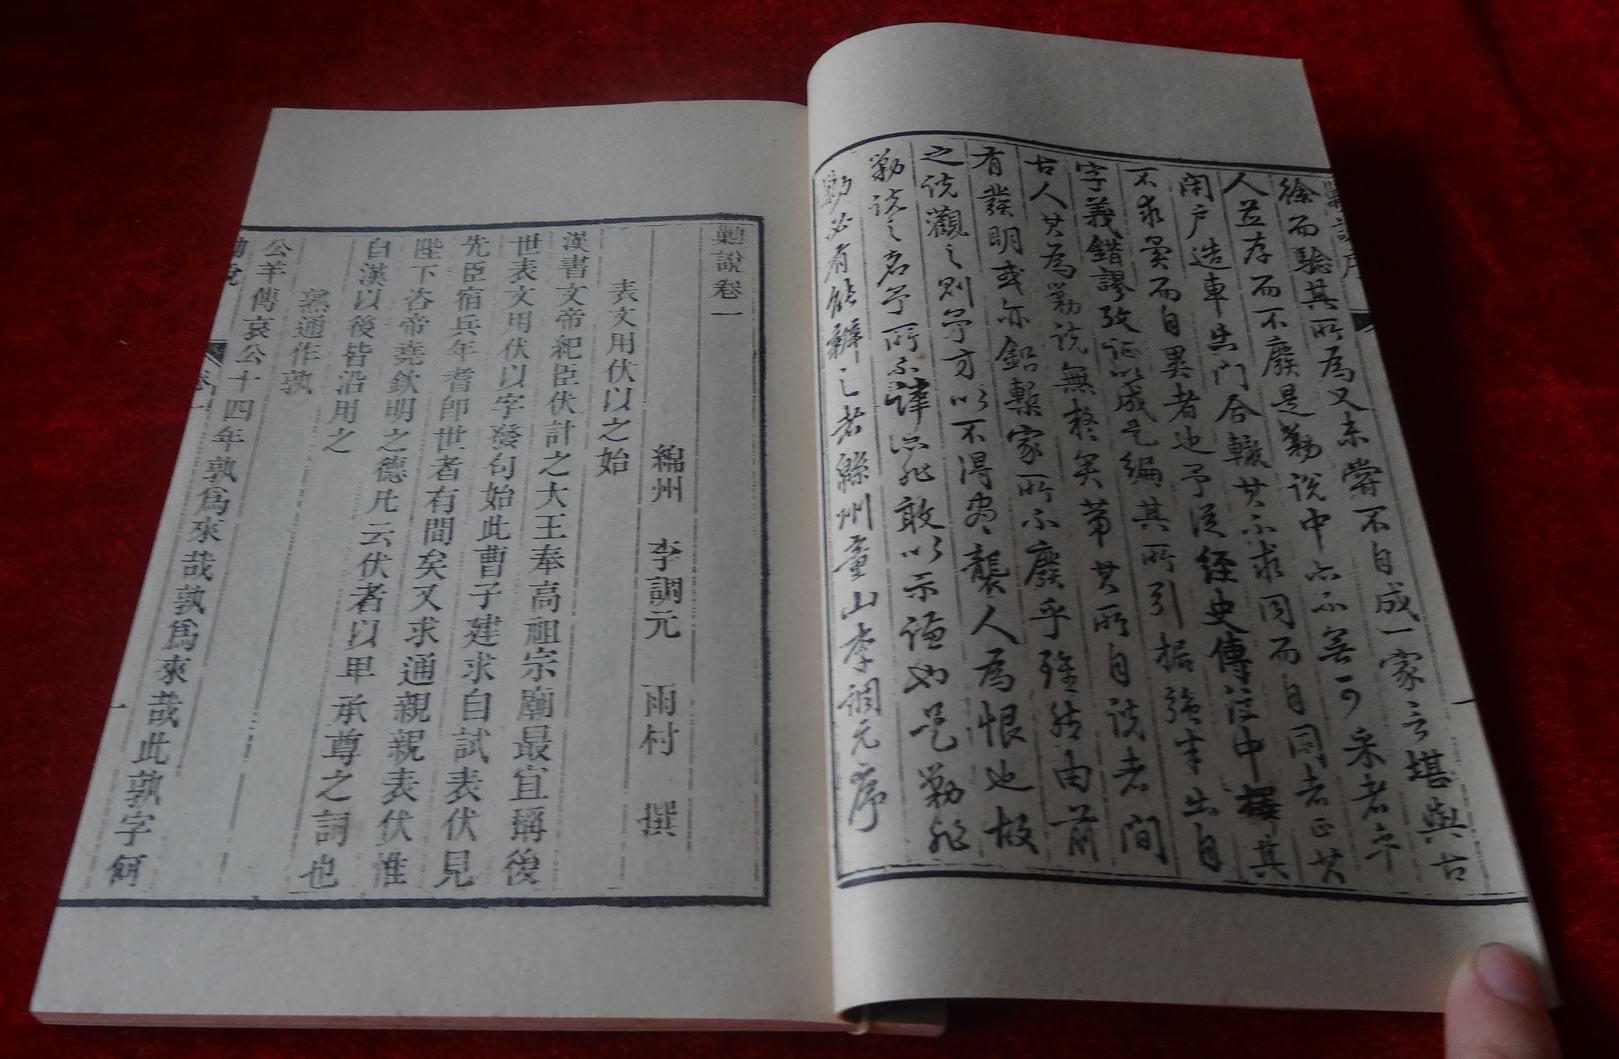 徐而驗其所爲又未嘗不自成一家言堪與古
人並存而不廢是勦說中亦不無可采者乎
閉户造車出門合轍其不求同而自同者正其
不求異而自異者也予從經史傳注中擇其
字義錯謬攷証以成是編其所引據強半出自
古人其為勦說無疑矣第其所自說者間
有發明或亦鉛槧家所不廢乎雖然由前
之說觀之則予方以不得盡襲人為恨也故
勦說之名予所不諱亦非敢以示謙也是勦非
勦必有能辨之者緜州童山李調元序
勦說卷一
綿州 李調元 雨村 撰
表文用伏以之始
漢書文帝紀臣伏計之大王奉高祖宗廟最宜稱後
世表文用伏以字發句始此曹子建求自試表伏見
先臣宿兵年耆即世者有間矣又求通親親表伏惟
陛下咨帝堯欽明之德凡云伏者以卑承尊之詞也
自漢以後皆沿用之
熟通作孰
公羊傳哀公十四年孰爲來哉孰爲來哉此孰字何
卷一
一